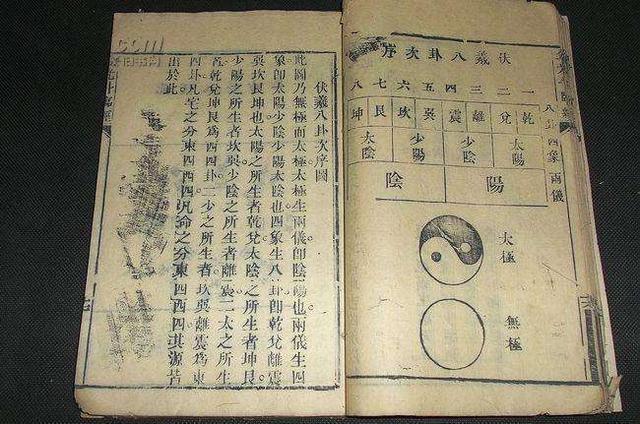 伏羲八卦次序
一二三四五六七八
乾兌離震巽坎艮坤
太陽 少陰 少陽 太陰
陽 陰
八卦 四象 兩儀
太極
無極
伏羲八卦次序圖
此圖乃無極而太極太極生兩儀卽陰陽也兩儀生四
象卽太陽少陰少陽太陰也四象生八卦卽乾兌離震
巽坎艮坤也太陽之所生者乾兌太陰之所生者坤艮
少陽之所生者坎巽少陰之所生者離震二太之所生
者乾兌坤艮爲西四卦二少之所生者坎巽離震爲東
四卦凡宅之分東四西四凡命之分東四西四其源皆
出於此
.com